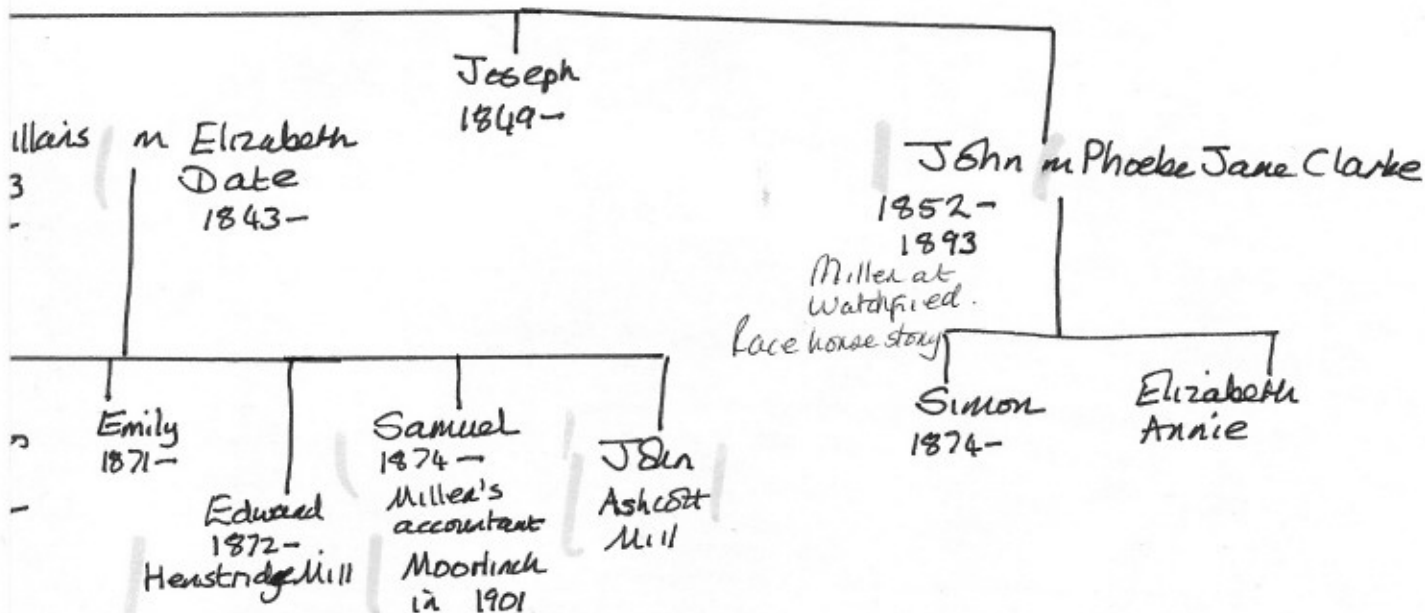 Joseph
1849-
illais m Elizabeth
3 Date
- 1843-
John m Phoebe Jane Clarke
1852-
1893
Miller at
Watchfied.
Race horse story
Emily
1871-
Edward
1872-
Henstridge Mill
Samuel
1874-
Miller's
accountant
Moorlinch
in 1901
John
Ashcott
Mill
Simon
1874-
Elizabeth
Annie